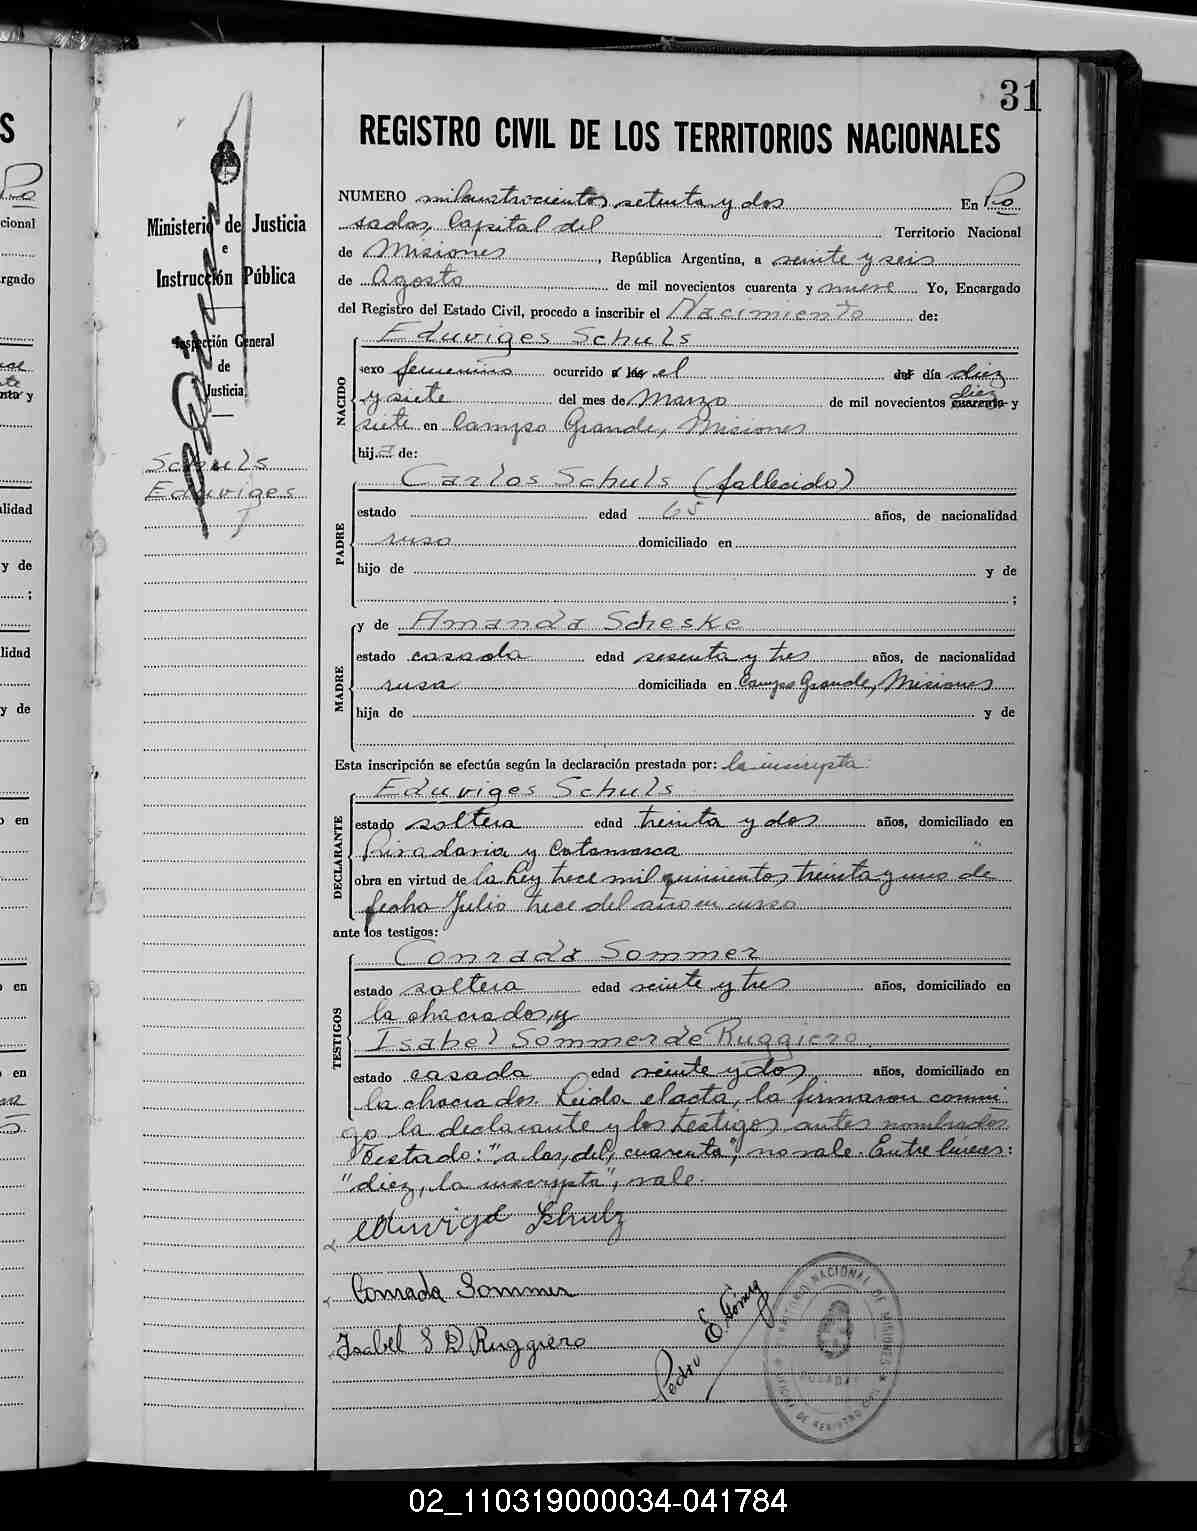 31
REGISTRO CIVIL DE LOS TERRITORIOS NACIONALES
Ministerio de Justicia
e
Instrucción Pública
Inspección General
de
Justicia
Schuls
Eduviges
NUMERO milcuatrocientos setenta y dos En Po
sadas, Capital del Territorio Nacional
de Misiones, República Argentina, a veinte y seis
de Agosto de mil novecientos cuarenta y nueve Yo, Encargado
del Registro del Estado Civil, procedo a inscribir el Nacimiento de:
Eduviges Schuls
NACIDO
sexo femenino ocurrido a las el del día diez
y siete del mes de Marzo de mil novecientos cuarenta diez y
siete en Campo Grande, Misiones
hija de:
PADRE
Carlos Schuls (fallecido)
estado edad 65 años, de nacionalidad
ruso domiciliado en
hijo de y de
;
MADRE
y de Amanda Scheske
estado casada edad sesenta y tres años, de nacionalidad
rusa domiciliada en Campo Grande, Misiones
hija de y de
Esta inscripción se efectúa según la declaración prestada por: la inscripta
DECLARANTE
Eduviges Schuls
estado soltera edad treinta y dos años, domiciliado en
Rivadavia y Catamarca
obra en virtud de la Ley trece mil quinientos treinta y uno de
fecha Julio trece del año en curso
ante los testigos:
TESTIGOS
Conrada Sommer
estado soltera edad veinte y tres años, domiciliado en
la chacra dos, y
Isabel Sommer de Ruggiero
estado casada edad veinte y dos años, domiciliado en
la chacra dos. Leida el acta, la firmaron conmi
go la declarante y los testigos antes nombrados
Testado: "a las, del, cuarenta", no vale. Entre lineas:
"diez, la inscripta", vale.
Eduvige Schulz
Conrada Sommer
Isabel S D Ruggiero
Pedro E. Gómez
TERRITORIO NACIONAL DE MISIONES
POSADAS
OFICINA DE REGISTRO CIVIL
02_110319000034-041784